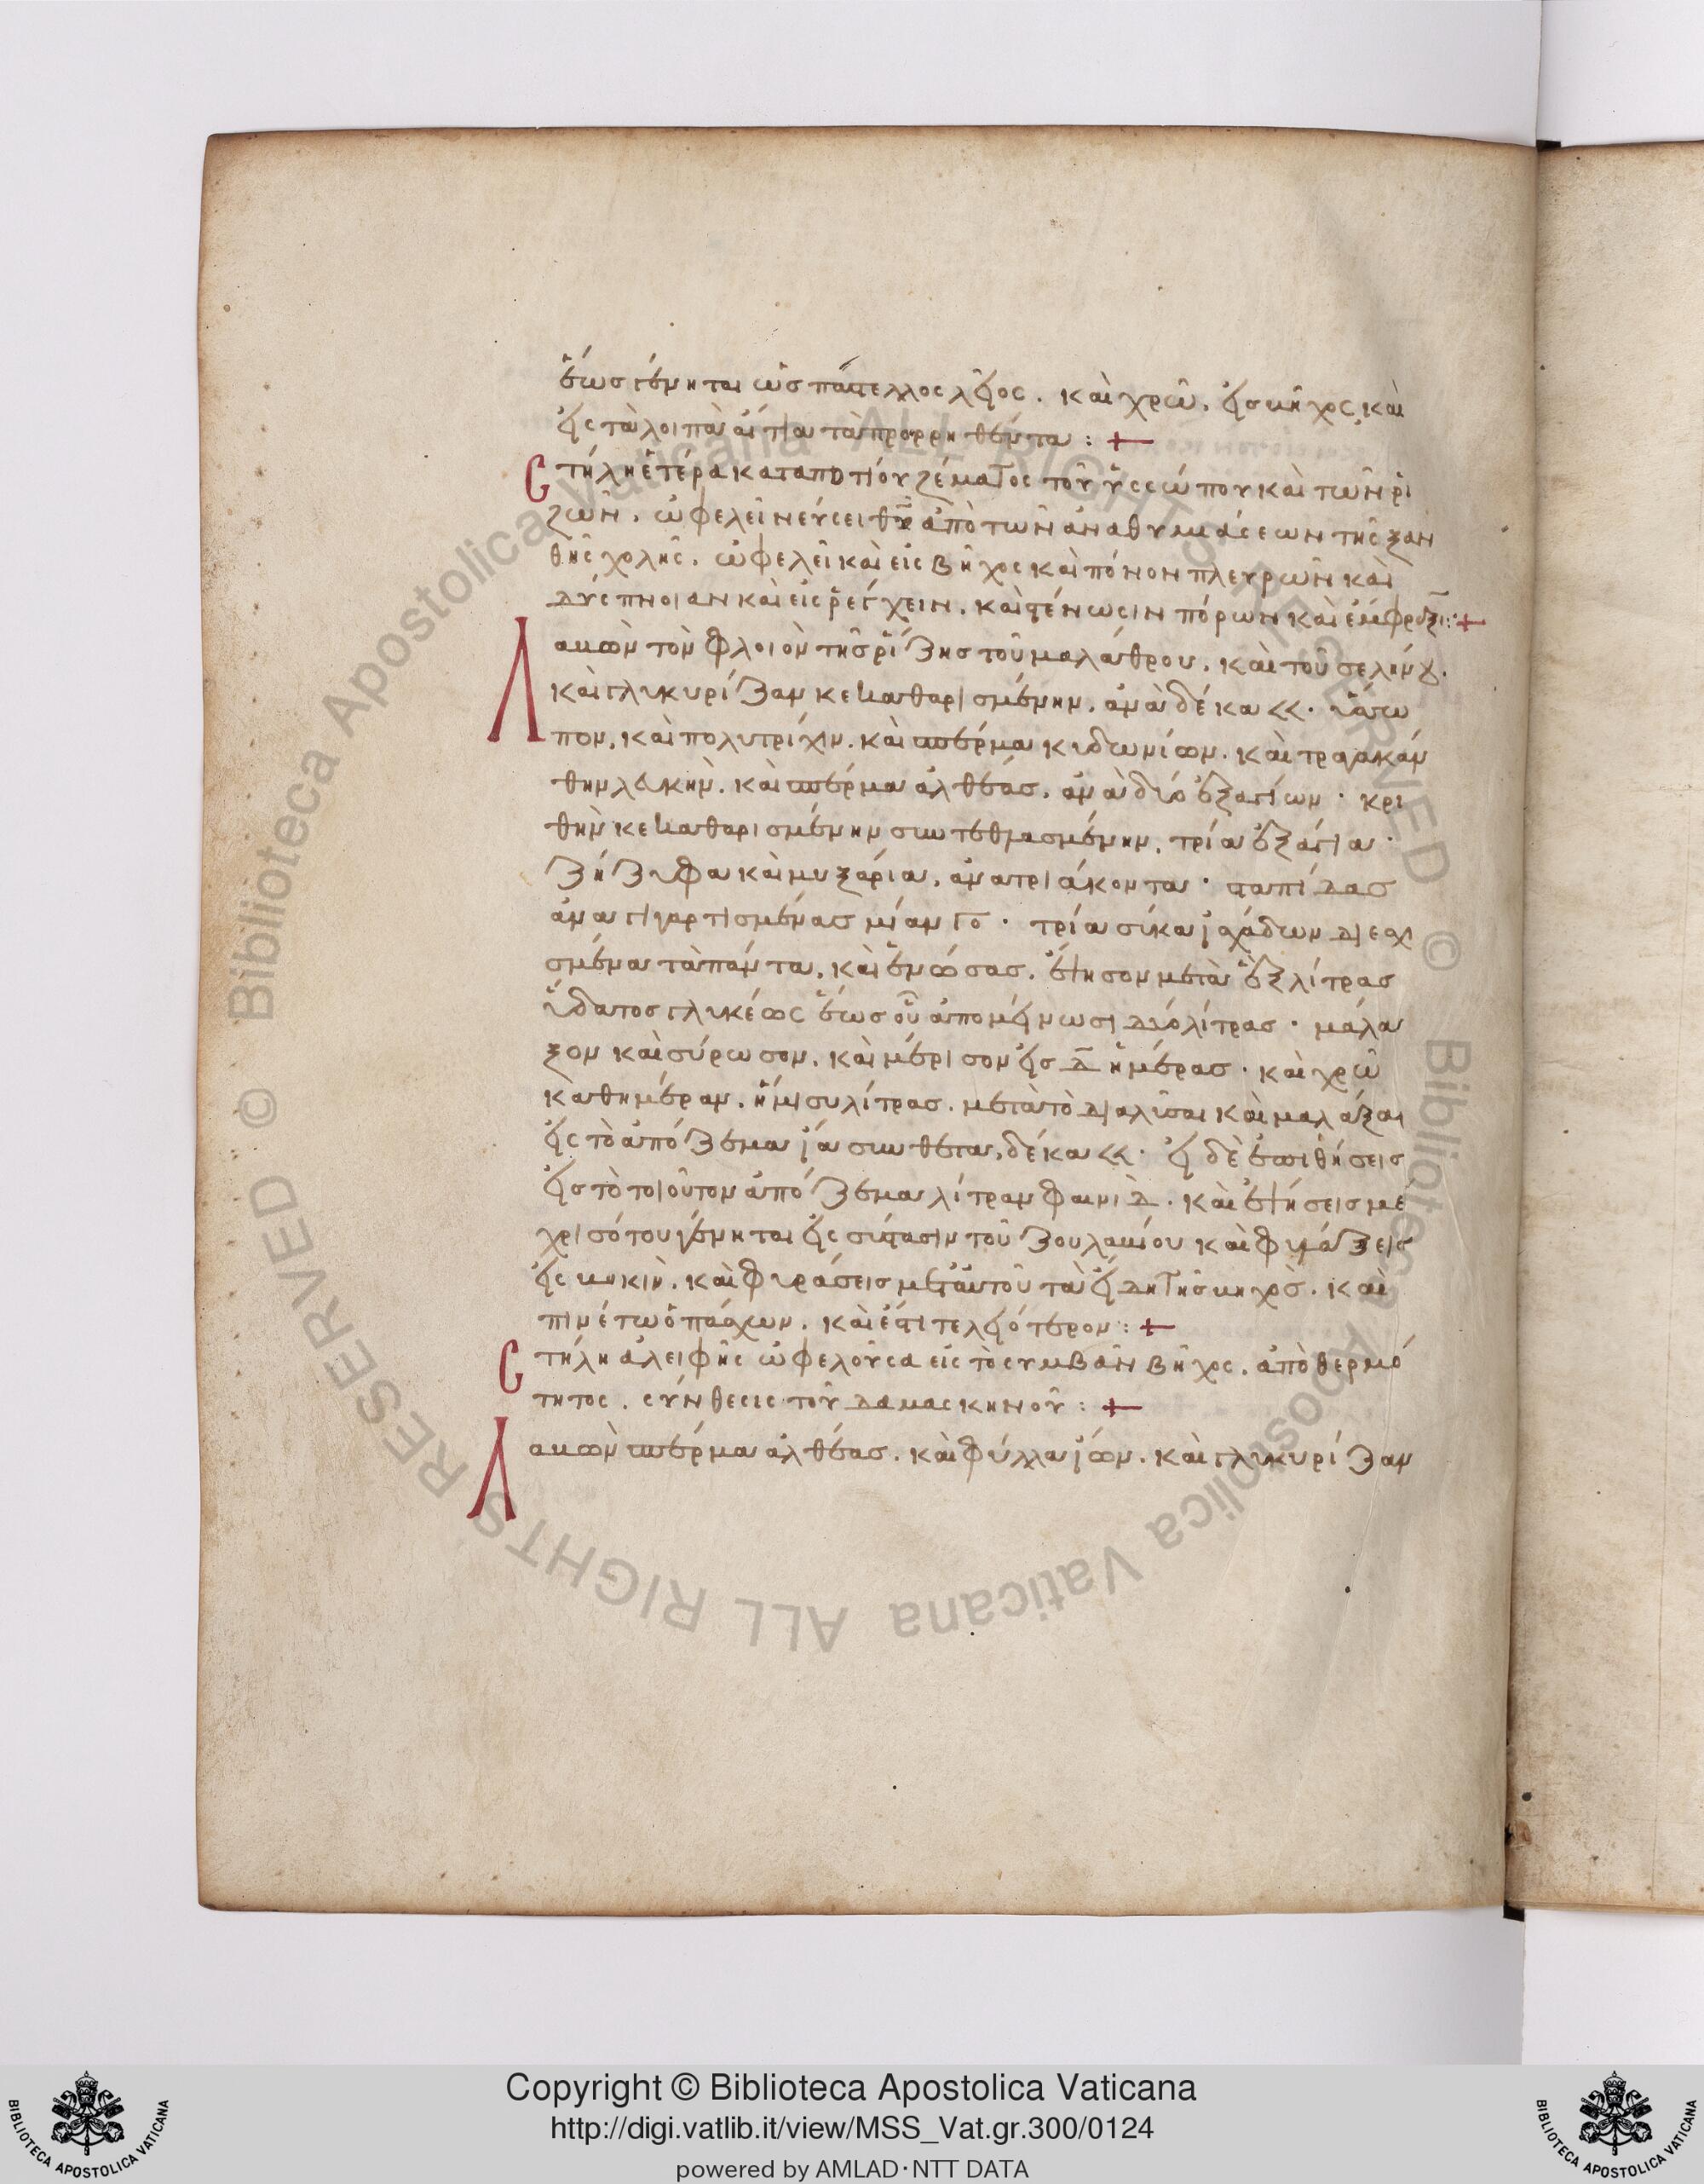 ἕως γένηται ὡς πάστελλος λεῖος. καὶ χρῶ, εἰς βῆχος καὶ
εἰς τὰ λοιπὰ αἴτια τὰ προρρηθέντα: +
Στήλη ἑτέρα καταποτίου ζέματος τοῦ ὑσσώπου καὶ τῶν ῥι
ζῶν. ὠφελεῖν εὔσει θΰ ἀπὸ τῶν ἀναθυμιάσεων τῆς ξαν
θῆς χολῆς. ὠφελεῖ καὶ εἰς βῆχος καὶ πόνον πλευρῶν καὶ
δύσπνοιαν καὶ εἰς ῥέγχειν. καὶ στένωσιν πόρων καὶ ἔμφραξι: +
Λαβὼν τὸν φλοιὸν τῆς ῥίζης τοῦ μαλάθρου. καὶ τοῦ σελίνου.
καὶ γλυκυρίζαν κεκαθαρισμένην. ἀνὰ δέκα <<. ὕσσω
πον, καὶ πολυτρίχιν. καὶ σπέρμα κυδωνίων. καὶ τραγακάν
θην λευκήν. καὶ σπέρμα ἀλθέας. ἀνὰ δύο ἑξαγίων. κρι
θὴν κεκαθαρισμένην συντεθλασμένην, τρία ἑξάγια.
ζήζυφα καὶ μυξάρια, ἀνὰ τριάκοντα. σταπίδας
ἀναγιγαρτισμένας μίαν Γο. τρία σύκα ἰσχάδων διεσχι
σμένα τὰ πάντα. καὶ ἑνώσας. ἕψησον μετὰ ἓξ λίτρας
ὕδατος γλυκέως ἕως οὗ ἀπομείνωσι δύο λίτρας. μάλα
ξον καὶ σύρωσον. καὶ μέρισον εἰς δ ἡμέρας. καὶ χρῶ
καθημέραν. ἥμισυ λίτρας. μετὰ τὸ διαλῦσαι καὶ μαλάξαι
εἰς τὸ ἀπόζεμα ἰάσυνθετα, δέκα <<. εἰ δὲ ἐπιθήσεις
εἰς τὸ τοιοῦτον ἀπόζεμα λίτραν φανιδ. καὶ ἑψήσεις μέ
χρις ὅτου γένηται εἰς σύστασιν τοῦ ζουλαπίου καὶ φυλάξεις
εἰς βικίν. καὶ φυράσεις μετ' αὐτοῦ τὰ εἴδη τῆς βηχός. καὶ
πινέτω ὁ πάσχων. καὶ ἔστι τελειότερον: +
Στήλη ἀλειφῆς ὠφελοῦσα εἰς τὸ συμβὰν βῆχος. ἀπὸ θερμό
τητος. σύνθεσις τοῦ Δαμασκηνοῦ: +
Λαβὼν σπέρμα ἀλθέας. καὶ φύλλα ἴων. καὶ γλυκυρίζαν
Copyright © Biblioteca Apostolica Vaticana
http://digi.vatlib.it/view/MSS_Vat.gr.300/0124
powered by AMLAD·NTT DATA
BIBLIOTECA APOSTOLICA VATICANA
BIBLIOTECA APOSTOLICA VATICANA
© Biblioteca Apostolica Vaticana ALL RIGHTS RESERVED © Biblioteca Apostolica Vaticana ALL RIGHTS RESERVED